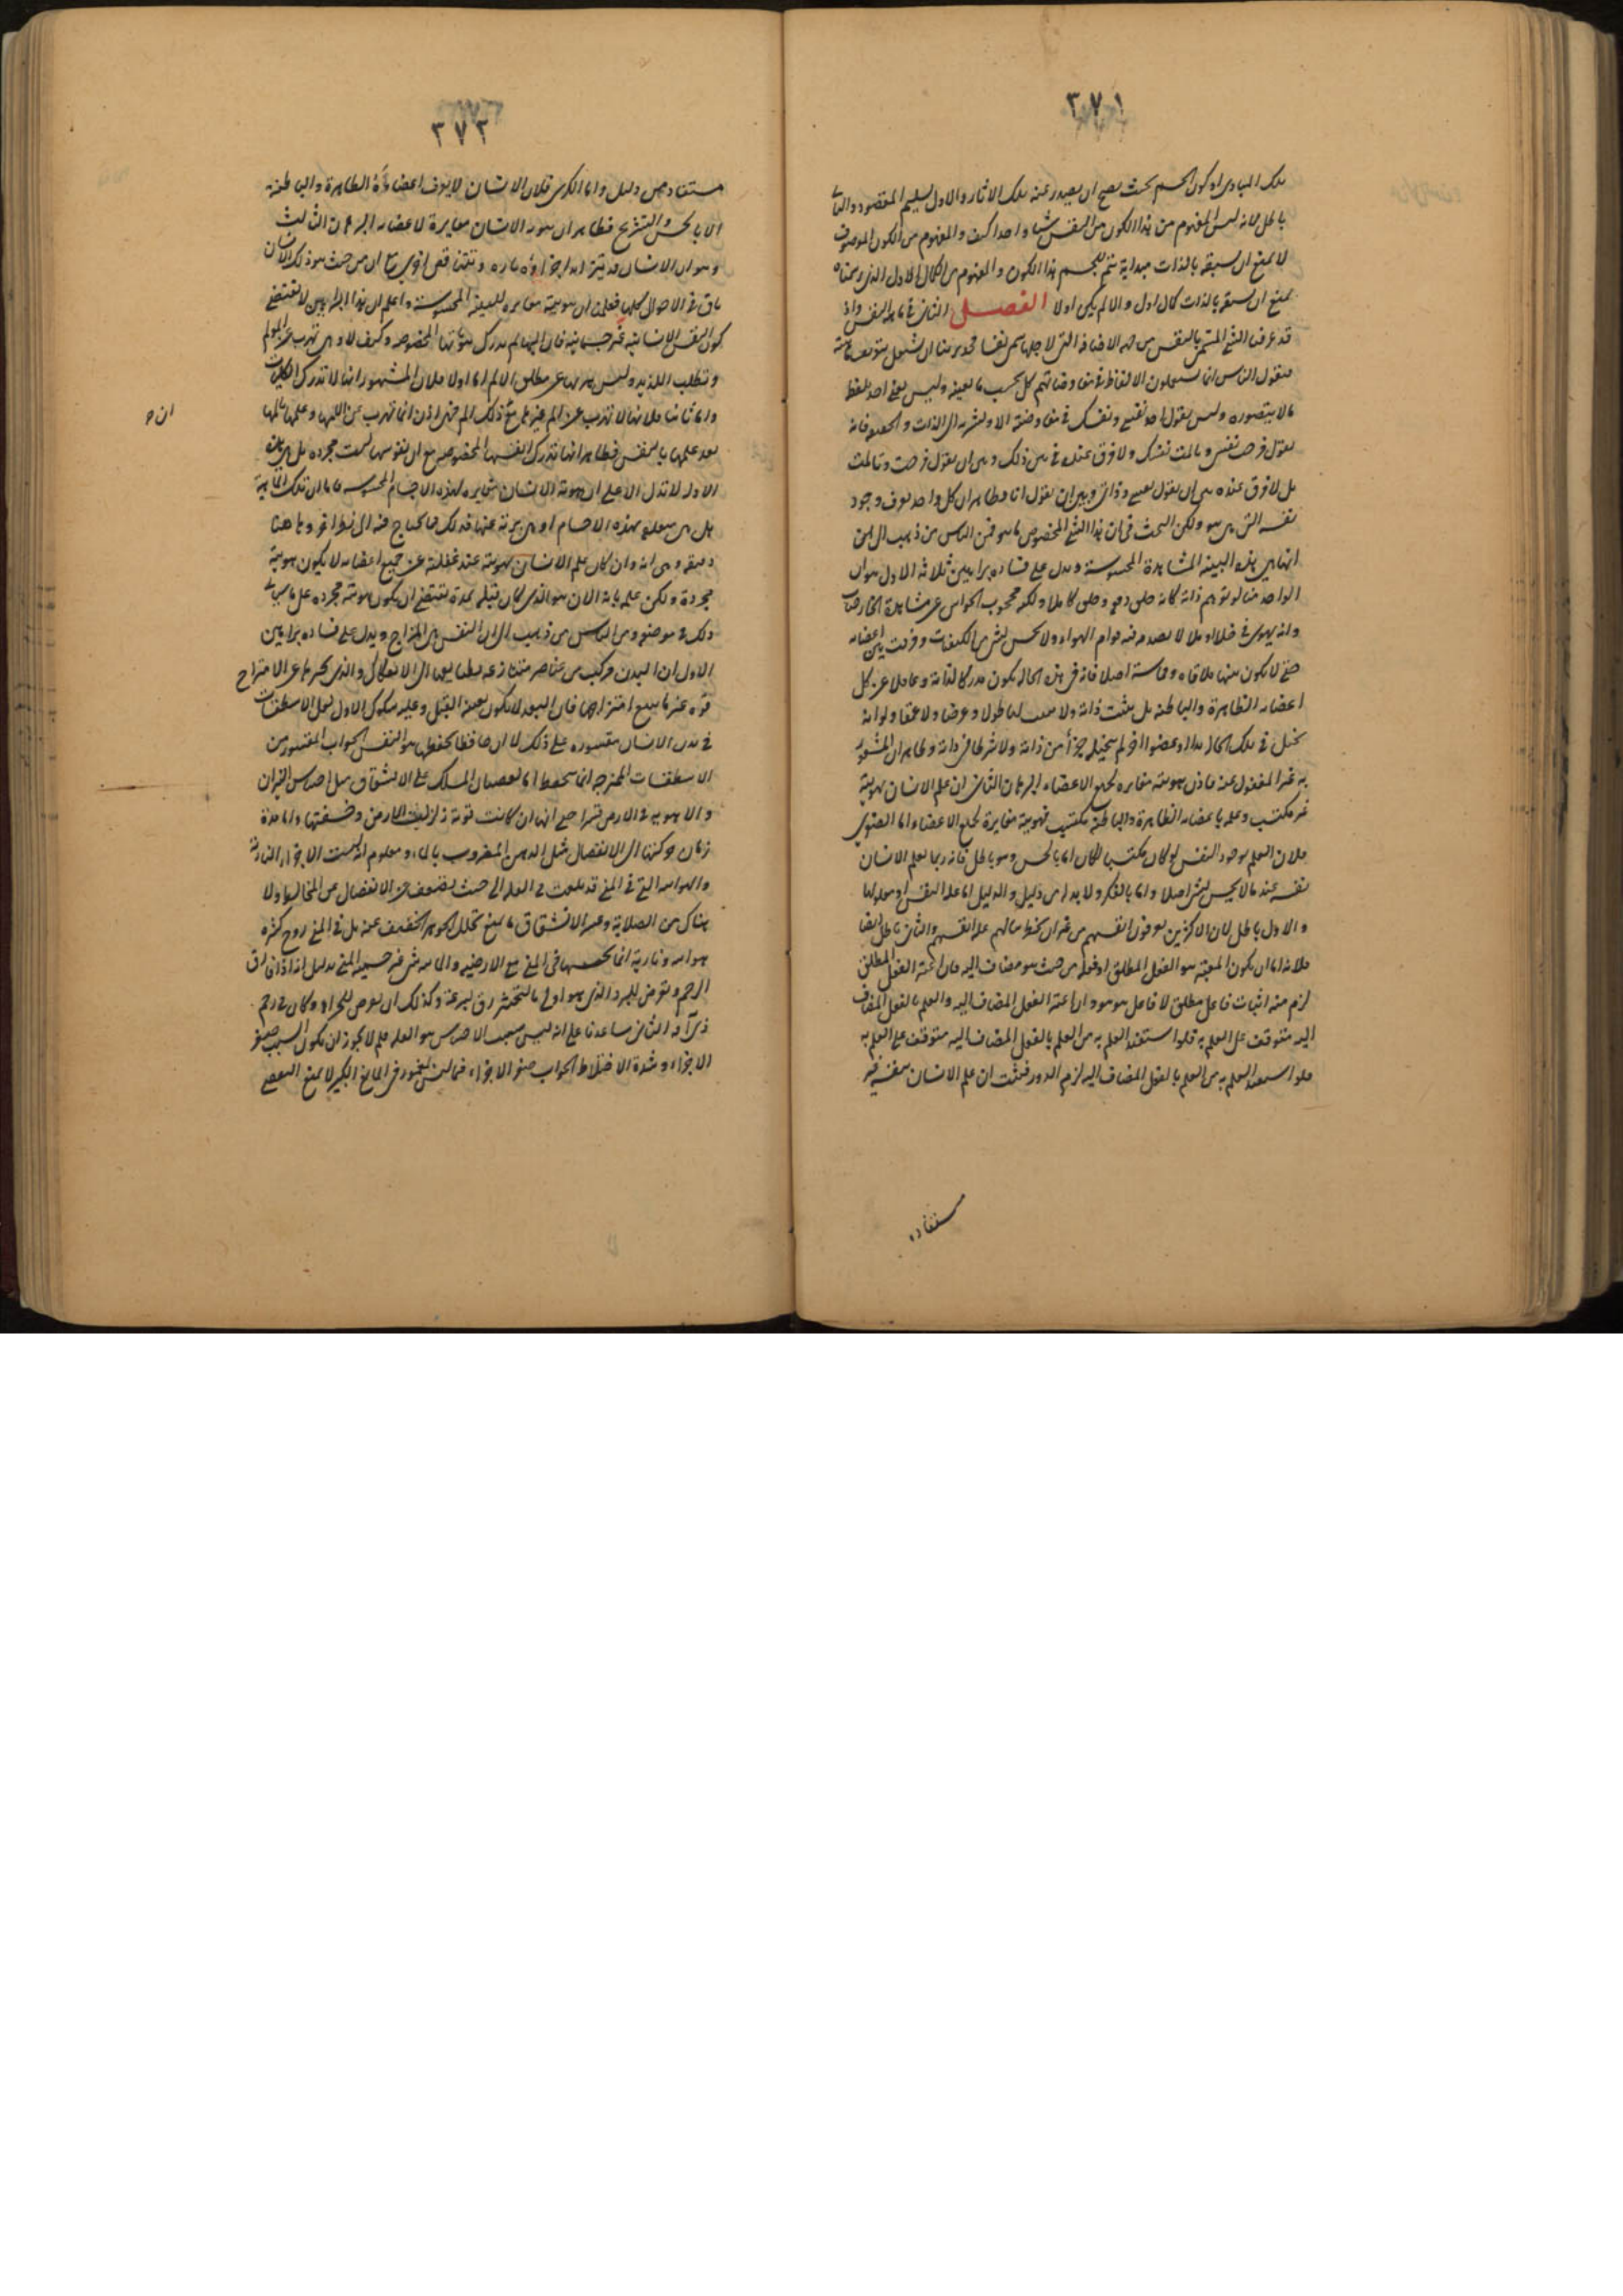 ٣٧١
تلك المبادى او كون الجسم بحيث يصح ان يصدر عنه تلك الاثار والاول تسليم المقصود والثانى
باطل لانه ليس المفهوم من هذا الكون من النفس شيئا واحدا كيف والمفهوم من الكون الموصوف
لا يمنع ان يسبقه بالذات مبداية يتم للجسم هذا الكون والمفهوم من الكمال الاول الذى رسمناه
يمنع ان يسبقه بالذات كمال اول والا لم يكن اولا الفصل الثانى فى ماهية النفس واذ
قد عرفت الشئ المسمى بالنفس من جهة الاضافة التى لاجلها سمى نفسا فجدير بنا ان نشتغل بتعريف ماهيته
فنقول الناس انما يستعملون الالفاظ فى مفاوضاتهم كل بحسب ما يعنيه وليس يعنى احد بلفظ
ما لا يتصوره وليس يقول احد نفسى ونفسك فى مفاوضته الا ويشير به الى الذات والحقيقة فانه
يقول فرحت نفسى وتالمت نفسك ولا فرق عنده فى بين ذلك وبين ان يقول فرحت وتالمت
بل لا فرق عنده بين ان يقول نفسى وذاتى وبين ان يقول انا فظاهر ان كل واحد يعرف وجود
نفسه التى هى هو ولكن البحث فى ان هذا الشئ المخصوص ما هو فمن الناس من ذهب الى
انها هى هذه البنية المشاهدة المحسوسة ويدل على فساده براهين ثلاثة الاول هو ان
الواحد منا لو توهم ذاته كانه خلق دفعة وخلق كاملا ولكنه محجوب الحواس عن مشاهدة الخارجيات
وانه يهوى فى خلاء او ملاء لا يصدمه فيه قوام الهواء ولا يحس بشئ من الكيفيات وفرقت بين اعضائه
حتى لا يكون بينها ملاقاة ومماسة اصلا فانه فى هذه الحالة يكون مدركا لذاته وغافلا عن كل
اعضائه الظاهرة والباطنة بل يثبت ذاته ولا يثبت لها طولا وعرضا ولا عمقا ولو انه
تخيل فى تلك الحالة يدا او عضوا اخر لم يتخيله جزأ من ذاته ولا شرطا فى ذاته وظاهر ان المشعور
به غير المغفول عنه فاذن هويته مغايرة لجميع الاعضاء البرهان الثانى ان علم الانسان بهويته
غير مكتسب وعلمه باعضائه الظاهرة والباطنة مكتسب فهويته مغايرة لجميع الاعضاء اما الصغرى
فلان العلم بوجود النفس لو كان مكتسبا لكان اما بالحس وهو باطل فانه ربما يعلم الانسان
نفسه عند ما لا يحس بشئ اصلا واما بالفكر ولا بد له من دليل والدليل اما علة النفس او معلولها
والاول باطل لان الاكثرين يعرفون انفسهم من غير ان يخطر ببالهم علة انفسهم والثانى باطل ايضا
فلانه اما ان يكون المعتبر هو الفعل المطلق او فعله من حيث هو مضاف اليه فان اعتبر الفعل المطلق
لزم منه اثبات فاعل مطلق لا فاعل هو هو وان اعتبر الفعل المضاف اليه والعلم بالفعل المضاف
اليه متوقف على العلم به فلو استفيد العلم به من العلم بالفعل المضاف اليه متوقف على العلم به
فلو استفيد العلم به من العلم بالفعل المضاف اليه لزم الدور فثبت ان علم الانسان بنفسه غير
مستفاد
٣٧٢
مستفاد من دليل واما الكبرى فلان الانسان لا يعرف اعضاءه الظاهرة والباطنة
الا بالحس والتشريح فظاهر ان هوية الانسان مغايرة لاعضائه البرهان الثالث
وهو ان الانسان قد يتزايد اجزاؤه تارة وتتناقص اخرى مع ان من حيث هو ذلك الانسان
باق فى الاحوال كلها فعلمنا ان هويته مغايرة للبنية المحسوسة واعلم ان هذا البراهين لا تقتضى
كون النفس الانسانية غير جسمانية فان البهايم تدرك ذواتها المخصوصة وكيف لا وهى تهرب عن المولم
وتطلب اللذيذ وليس هربها عن مطلق الالم اما اولا فلان المشهور انها لا تدرك الكليات
واما ثانيا فلانها لا تهرب عن الم غيرها مع ذلك الم فهى اذن انما تهرب عن المها وعلمها بالمها
بعد علمها بانفس فظاهر انها تدرك انفسها المخصوصة مع ان نفوسها ليست مجردة بل البرهان
الاول لا تدل الا على ان هوية الانسان مغايرة لهذه الاجسام المحسوسة فاما ان تلك الماهية
هل هى متعلقة بهذه الاجسام او هى بريئة عنها فذلك مما يحتاج فيه الى نظر اخر وها هنا
دقيقة وهى انه وان كان علم الانسان بهويته عند غفلته عن جميع اعضائه لا يكون هويته
مجردة ولكن علمه بانه الان هو الذى كان قبله بمدة تقتضى ان يكون هويته مجردة على ما سياتى
ذلك فى موضعه ومن الناس من ذهب الى ان النفس هى المزاج ويدل على فساده براهين
الاول ان البدن مركب من عناصر متنازعة بطبايعها الى الانفكاك والذى يجبرها على الامتزاج
قوة غير ما يتبع امتزاجها فان البعد لا يكون بعينه القبل وعليه شكوك الاول لعل الاسطقسات
فى بدن الانسان مقسورة على ذلك لا ان حافظا يحفظها هو النفس الجواب المقسور من
الاسطقسات الممتزجة انما يتحفظ اما لعصيان المسلك على الانشقاق مثل احتباس النيران
والاهوية فى الارض قسرا حتى انها ان كانت قوية زلزلت الارض وخسفتها واما مدة
زمان حركتها الى الانفصال مثل الدهن المضروب بالماء ومعلوم انه ليست الاجزاء النارية
والهوائية التى فى المنى قد بلغت فى القلة الى حيث يضعف عن الانفصال عن المخالط ولا
هناك من الصلابة وعسر الانشقاق ما يمنع تحلل الجوهر الخفيف عنه بل فى المنى روح كثيرة
هوائية ونارية انما تحبسها فى المنى مع الارضية والمائية شئ غير جسمية المنى بدليل انه اذا فارق
الرحم وتعرض للبرد الذى هو اولى بالتخثير رق بسرعة وكذلك ان تعرض للحر او وكان فى رحم
ذى آفة الثانى ساعدنا على انه ليس سبب الاحتباس هو القلة فلم لا يجوز ان يكون السبب صغر
الاجزاء وشدة الاختلاط الجواب صغر الاجزاء فيما ليس بمغمور فى المانع الكثير لا يمنع التفصى